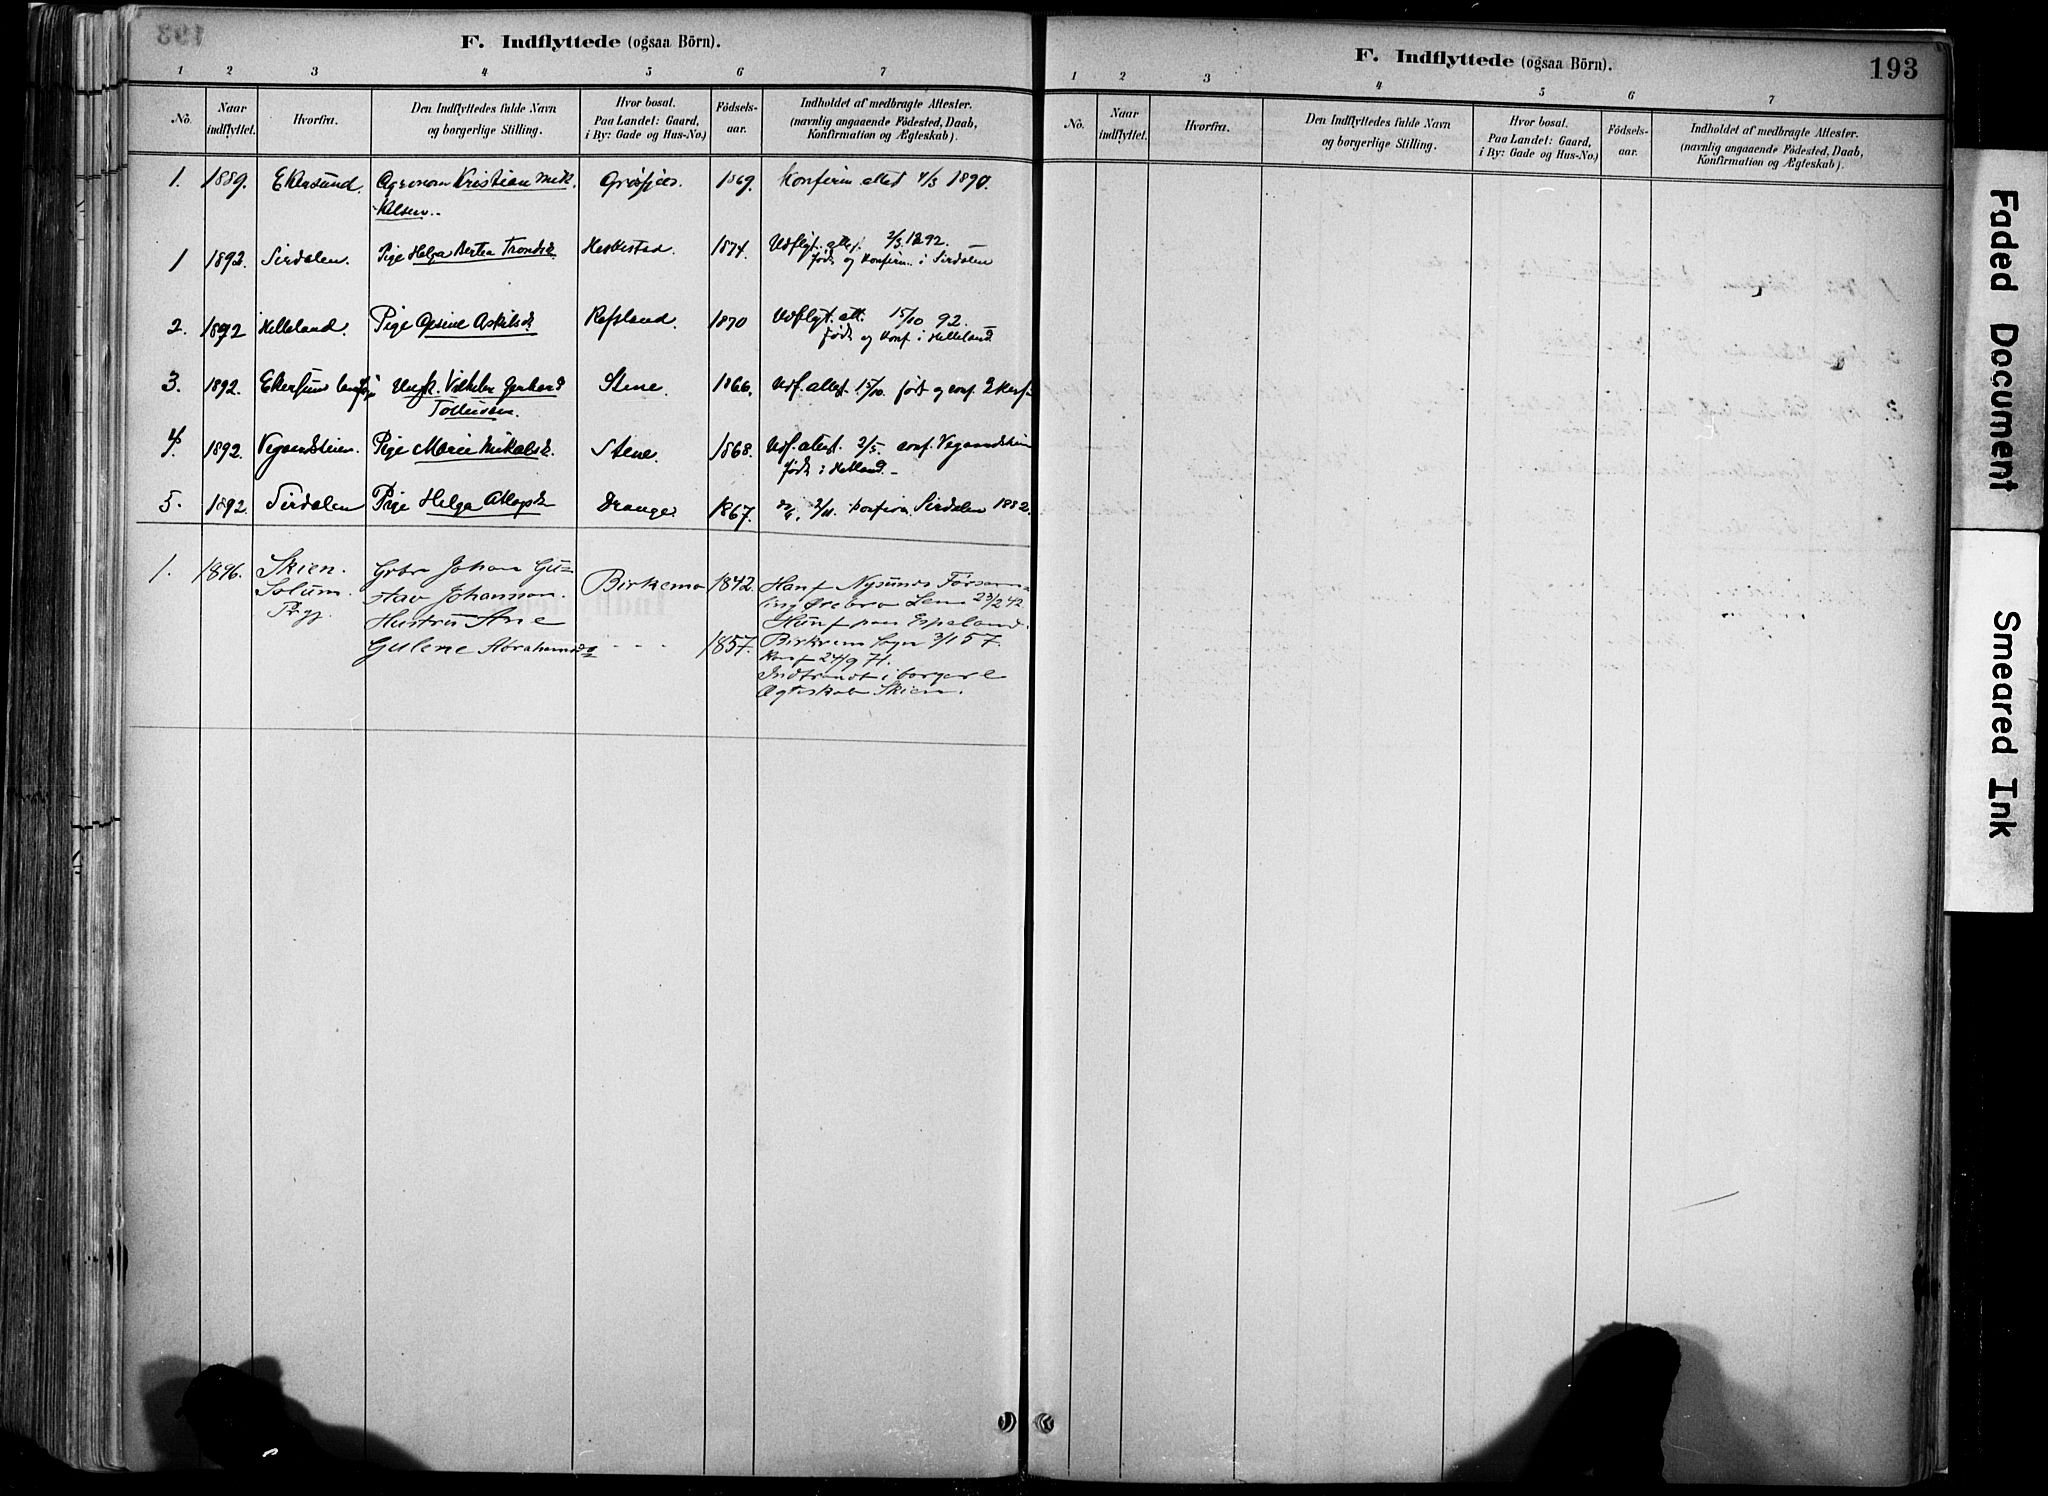 F. Indflyttede (ogsaa Börn).
1 2 3 4 5 6 7
No. Naar indflyttet. Hvorfra. Den Indflyttedes fulde Navn og borgerlige Stilling. Hvor bosat. Paa Landet: Gaard, i By: Gade og Hus-No.) Födsels-aar. Indholdet af medbragte Attester. (navnlig angaaende Födested, Daab, Konfirmation og Ægteskab).
1. 1889. Ekersund. Agronom Kristian Mik- 1869. Konfirm attest 4/3 1890.
kelsen.
1 1892. Sirdalen. Pige Helga Bertea Trondsd. Heskestad. 1874. Udflyt. attest. 2/5 1892.
født og konfirm. i Sirdalen
2. 1892 Helleland. Pige Gesine Askilsd. Refsland. 1870 Udflyt. att. 15/10 92.
født og konf. i Helleland
3. 1892. Ekersund Ungk. Vilhelm Gerhard Stene. 1866. Udf. attest. 15/10. født og conf. Ekers.
Tollefsen.
4. 1892. Pige Marie Mikalsd. Stene. 1868. Udf. attest. 2/5. conf.
født i Helland.
5. 1892. Sirdalen Pige Helga Atlagsd. Drange 1867. konfirm. Sirdalen 1882.
1. 1896. Skien. Johan Gu- Birkemo 1842. Han f Nysunds Forsam-
Solum. stav Johannson. ling Ørebro Len 23/2 42.
Prgj. Hustru Ane Hun f paa Espeland.
Gulene Abrahamsd. - - - 1857. Birkrem Sogn 3/1 57.
Konf 24/9 71.
Indtraadt i borgerl
Ægteskab Skien.
F. Indflyttede (ogsaa Börn).
193
1 2 3 4 5 6 7
No. Naar indflyttet. Hvorfra. Den Indflyttedes fulde Navn og borgerlige Stilling. Hvor bosat. Paa Landet: Gaard, i By: Gade og Hus-No.) Födsels-aar. Indholdet af medbragte Attester. (navnlig angaaende Födested, Daab, Konfirmation og Ægteskab).
Faded Document
Smeared Ink